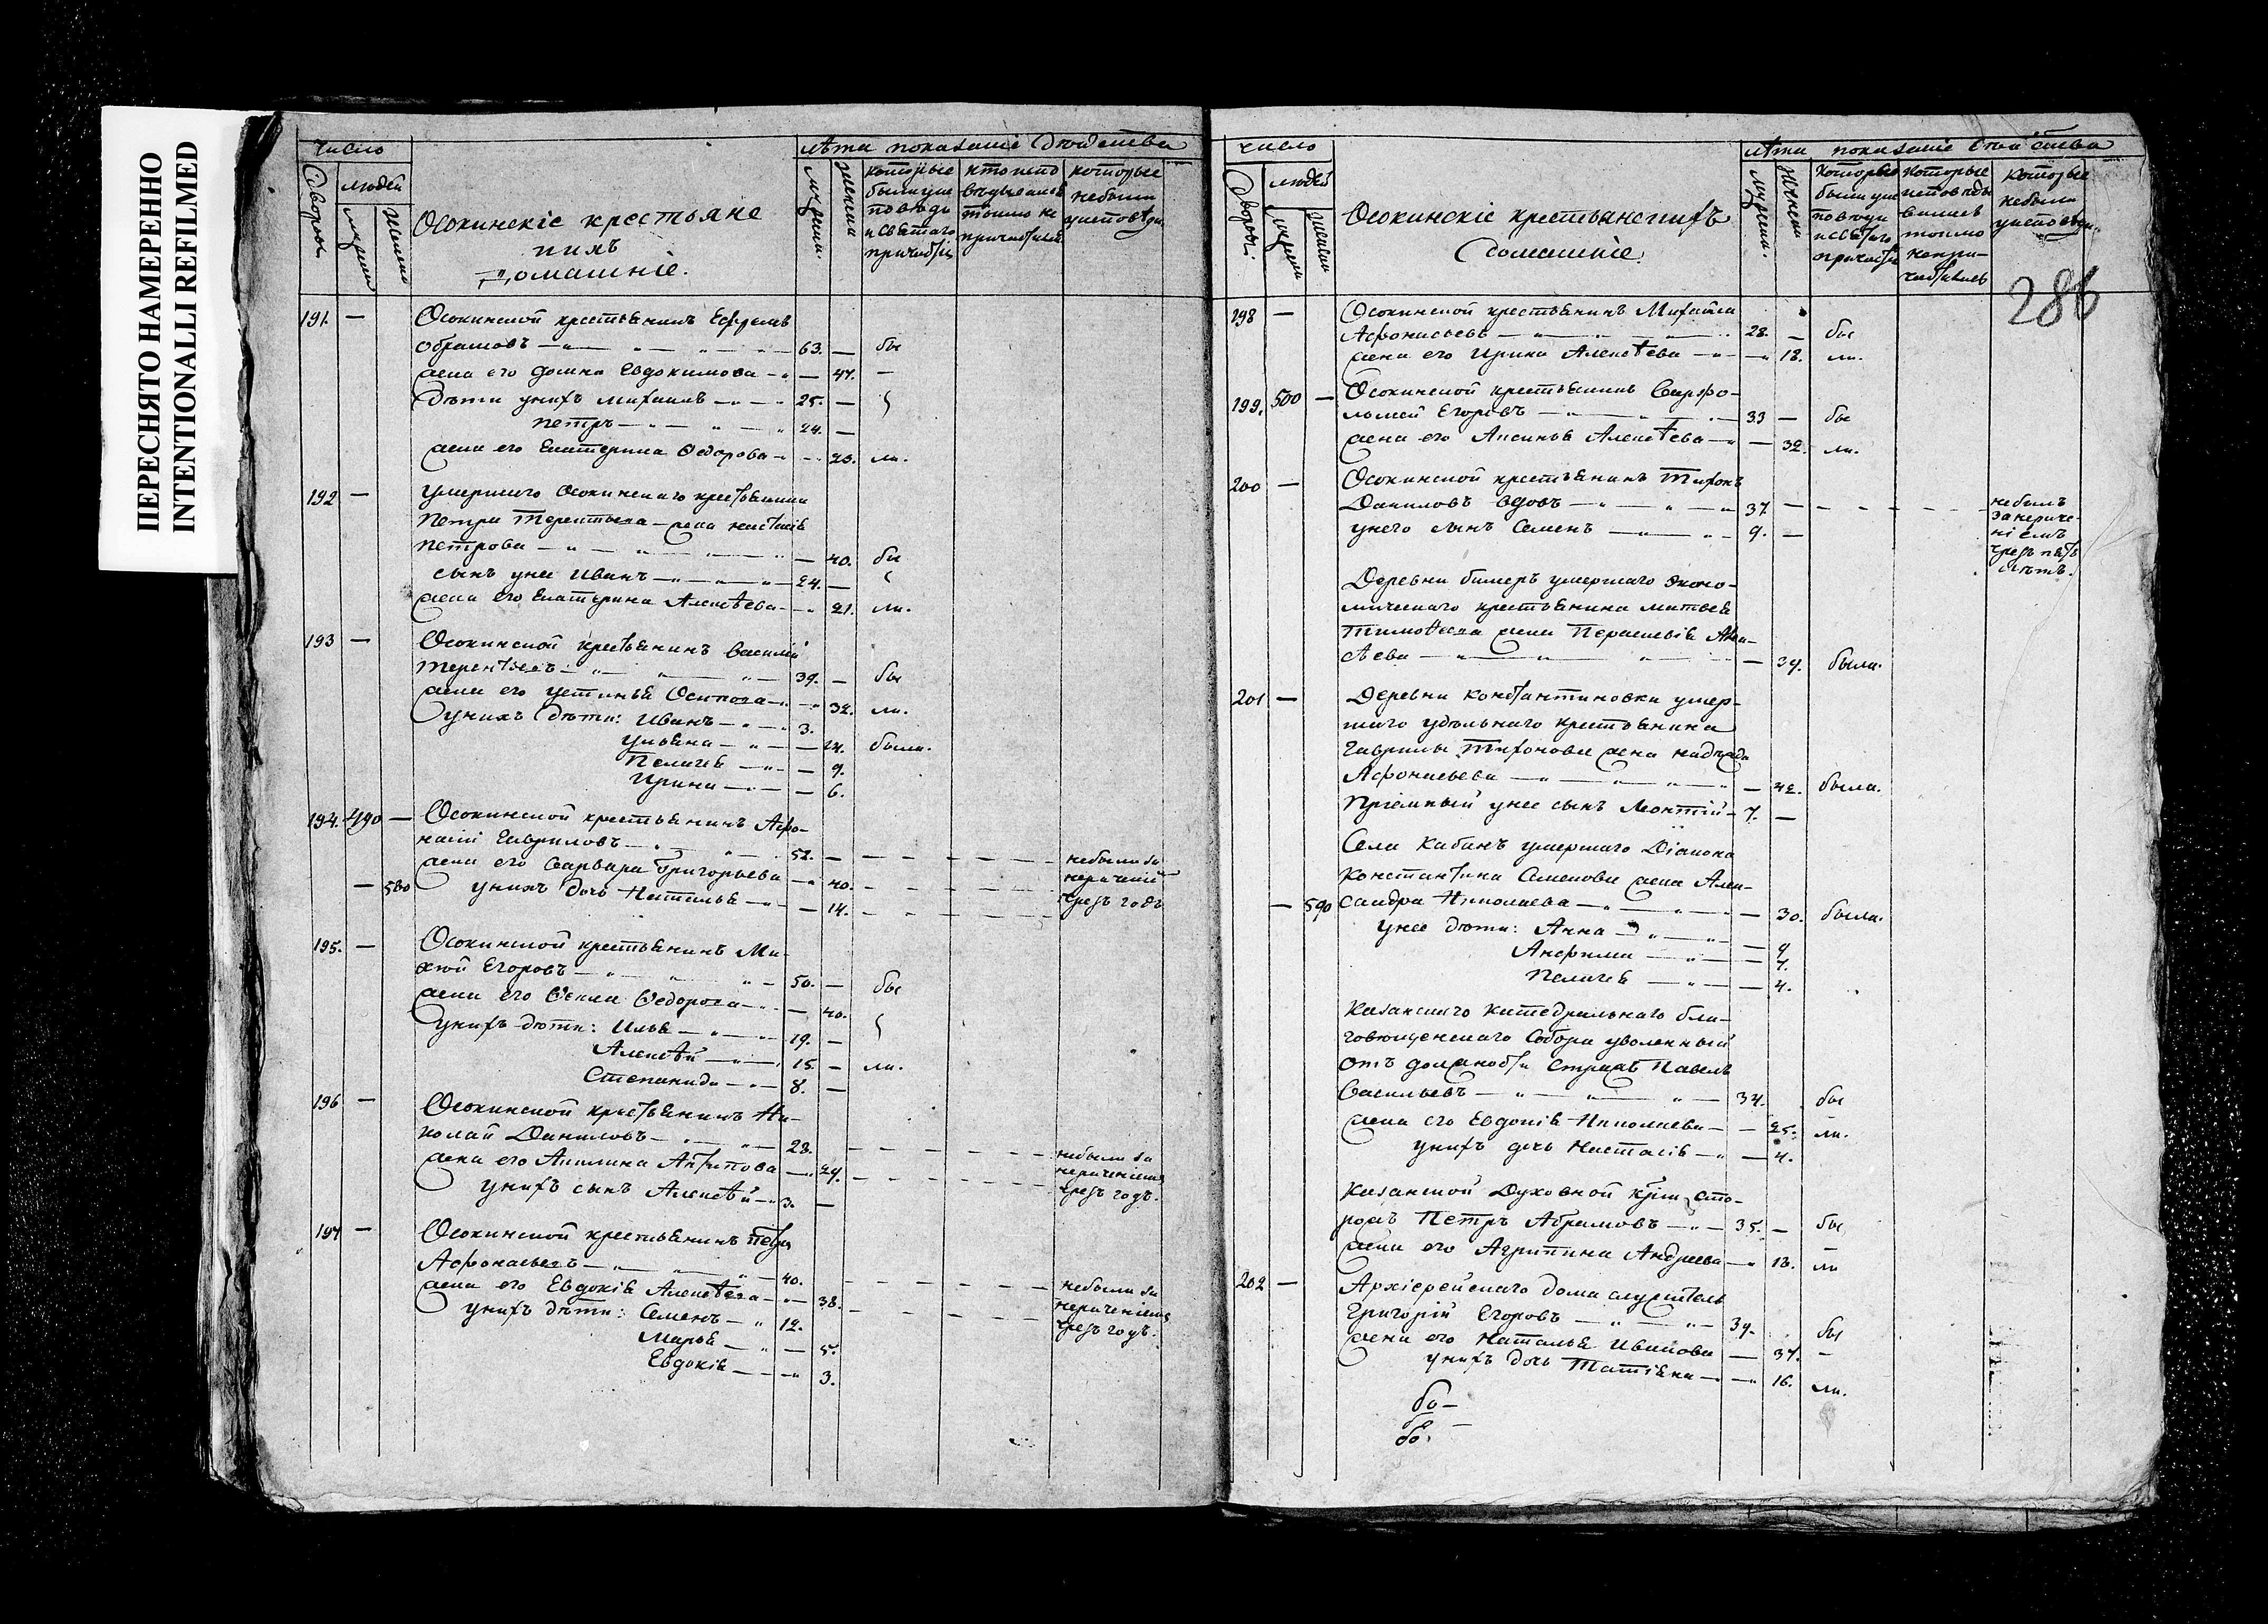 ПЕРЕСНЯТО НАМЕРЕННО
INTENTIONALLI REFILMED
число
лѣта показанiе
Дворы
людей
мужеска
женска
Осокинскiе крестьяне
и ихъ
Домашнiе.
мужеска
женска
которые
были у ис
повѣди
и святаго
причастiя
кто испо
вѣдывался
токмо не
причастился
которые
небыли
у исповѣди
191. —
Осокинской крестьянинъ Ефремъ
Обрамовъ — 63. — бы
жена его Домна Евдокимова — 47. —
дѣти у нихъ Михаилъ — 25. —
Петръ — 24. —
жена его Екатерина Федорова — 23. ли.
192 —
Умершаго Осокинскаго крестьянина
Петра Терентьева жена Настасiя
Петрова — 40. бы
сынъ у нее Иванъ — 24. —
жена его Екатерина Алексѣева — 21. ли.
193 —
Осокинской крестьянинъ Василiй
Терентьевъ — 39. — бы
жена его Устинья Осипова — 32. ли.
у нихъ дѣти: Иванъ — 3.
Ульяна — 14. была.
Пелагея — 9.
Ирина — 6.
194. 490 —
Осокинской крестьянинъ Афо-
насiй Гавриловъ — 52. — небыли за
жена его Варвара Григорьева — 40. нераченiе
— 580 у нихъ дочь Наталья — 14. чрезъ годъ
195. —
Осокинской крестьянинъ Ми-
хей Егоровъ — 50. — бы
жена его Фекла Федорова — 40.
у нихъ дѣти: Илья — 19. —
Алексѣй — 15. — ли.
Степанида — 8. —
196 —
Осокинской крестьянинъ Ни-
колай Даниловъ — 28. — небыли за
жена его Акилина Антипова — 24. нераченiемъ
у нихъ сынъ Алексѣй — 3. — чрезъ годъ.
197 —
Осокинской крестьянинъ Петръ
Афонасьевъ — 40. небыли за
жена его Евдокiя Алексѣева — 38. нераченiемъ
у нихъ дѣти: Семенъ — 12. чрезъ годъ.
Марья — 5.
Евдокiя — 3.
число
лѣта показанiе
Дворы.
людей
мужеска
женска
Осокинскiе крестьяне и ихъ
домашнiе.
мужеска.
женска
Которые
были у ис
повѣди
и святаго
причастiя
Которые
исповѣды
вались
токмо
непри-
частились
Которые
небыли
у исповѣди.
286
198 —
Осокинской крестьянинъ Михайла
Афонасьевъ — 28. — бы
жена его Ирина Алексѣева — 18. ли.
199. 500 —
Осокинской крестьянинъ Варфо-
ломей Егоровъ — 33 — бы
жена его Аксинья Алексѣева — 32. ли.
200 —
Осокинской крестьянинъ Тихонъ
Даниловъ вдовъ — 37. — небылъ
у него сынъ Семенъ — 9. — за нераче-
нiемъ
чрезъ пять
лѣтъ.
Деревни Бимеръ умершаго эконо-
мическаго крестьянина Матвея
Тимофеева жена Парасковiя Алек-
сѣева — 39. была.
201 —
Деревни Константиновки умер-
шаго удѣльнаго крестьянина
Гаврилы Тихонова жена Надежда
Афонасьева — 42. была.
Прiемный у нее сынъ Леонтiй — 7. —
Села Кабанъ умершаго Дiакона
Константина Семенова жена Алек-
— 590 сандра Николаева — 30. была.
у нее дѣти: Анна — 9
Анфима — 7.
Пелагея — 4.
Казанскаго Катедральнаго Бла-
говѣщенскаго Собора уволенный
отъ должности Стражъ Павелъ
Васильевъ — 34. бы
жена его Евдокiя Николаева — 25. ли.
у нихъ дочь Настасiя — 4.
Казанской Духовной сто-
рожъ Петръ Абрамовъ — 35. — бы
жена его Агрипина Андреева — 18. ли
202 —
Архiерейскаго дома служитель
Григорiй Егоровъ — 39. бы
жена его Наталья Иванова — 37. —
у нихъ дочь Татiяна — 16. ли.